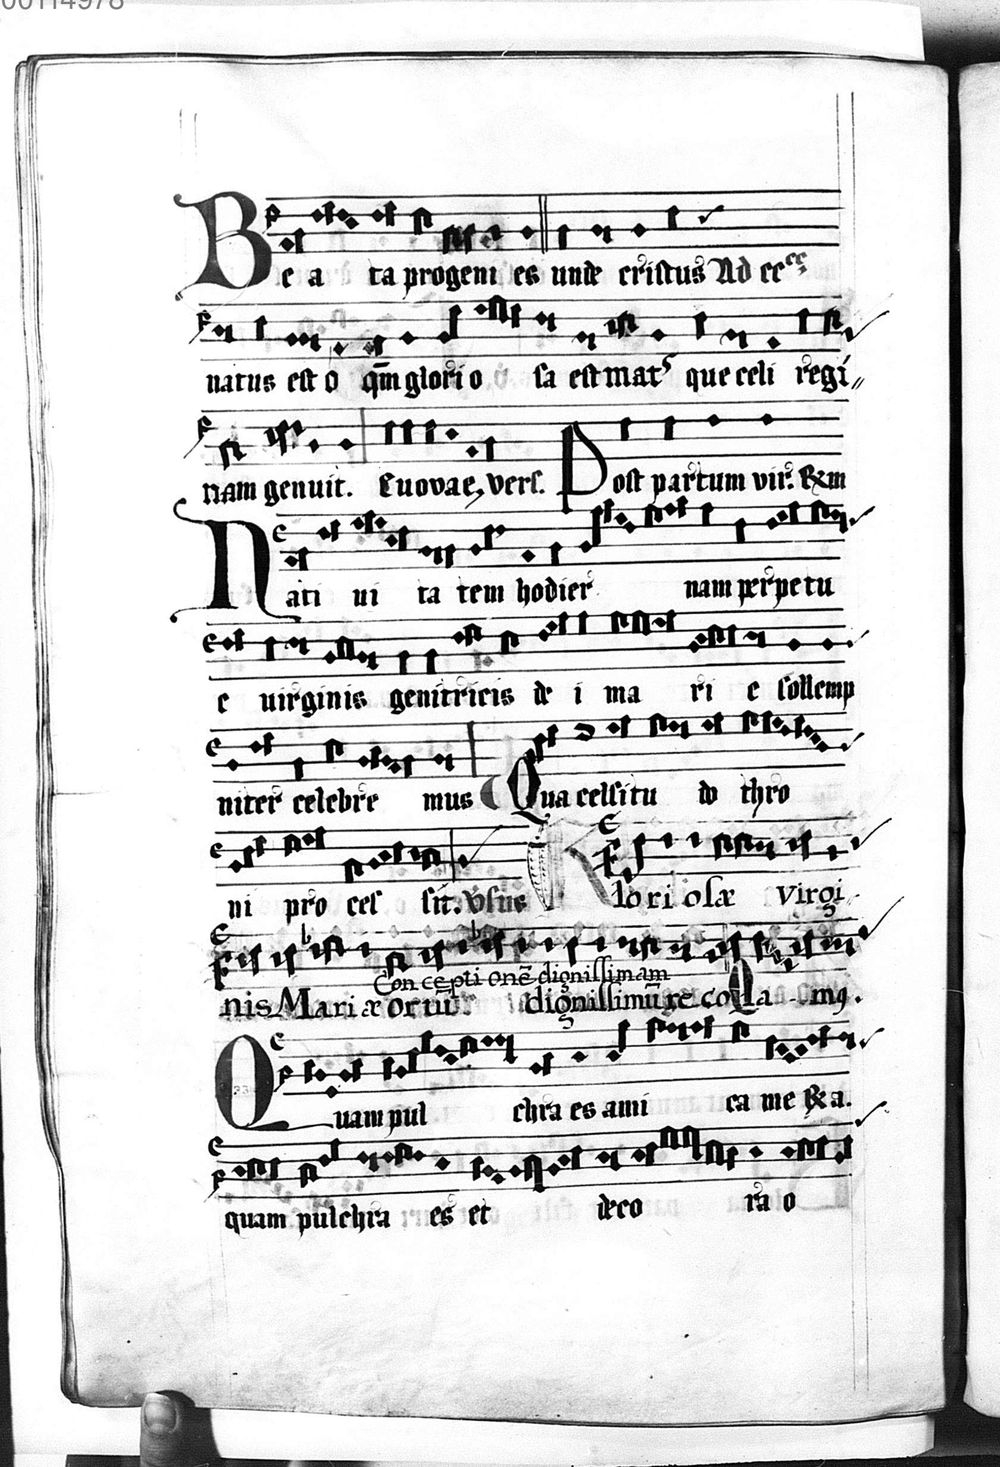 00114978
Be a ta progeni es unde cristus Ad ec
natus est o qm̄ glorio sa est mat que celi regi
nam genuit. Euovae, vers. Post partum vir. &m
Nati ui ta tem hodier nam perpetu
e uirginis genitricis de i ma ri e sollemp
niter celebre mus Qua celsitu do thro
ni pro ces sit. Glori osæ virgi
Con cepti onē dignissimam
nis Mariæ ortū dignissimū re co la - mꝰ.
Quam pul chra es ami ca me & a.
quam pulchra es et deco ra o